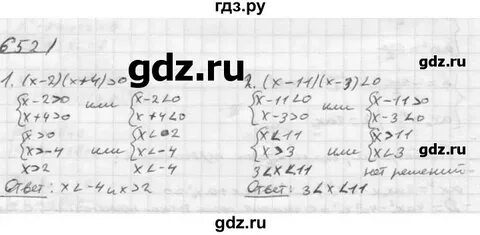 гдз.ру
652/
gdz.ru
1. (x-2)(x+4)>0
{x-2>0 или {x-2<0
{x+4>0 {x+4<0
{x>0 {x<02
{x>-4 {x<-4
x>2 x<-4
Ответ: x<-4 и x>2
2. (x-11)(x-3)<0
{x-11<0 или {x-11>0
{x-3>0 {x-3<0
{x<11 {x>11
{x>3 {x<3
3<x<11 нет решений
Ответ: 3<x<11
gdz.ru
gdz.ru